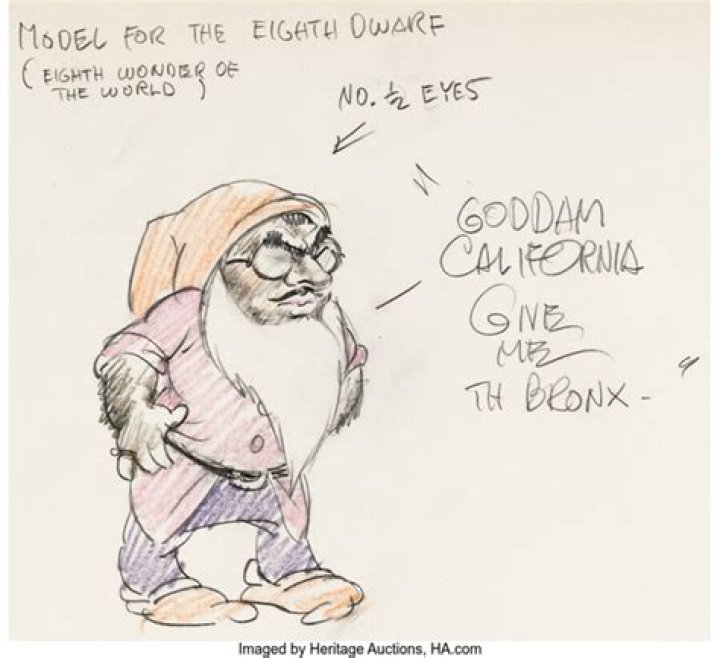 MODEL FOR THE EIGHTH DWARF
( EIGHTH WONDER OF
THE WORLD )
NO. ½ EYES
"GODDAM
CALIFORNIA
GIVE
ME
TH BRONX - "
Imaged by Heritage Auctions, HA.com